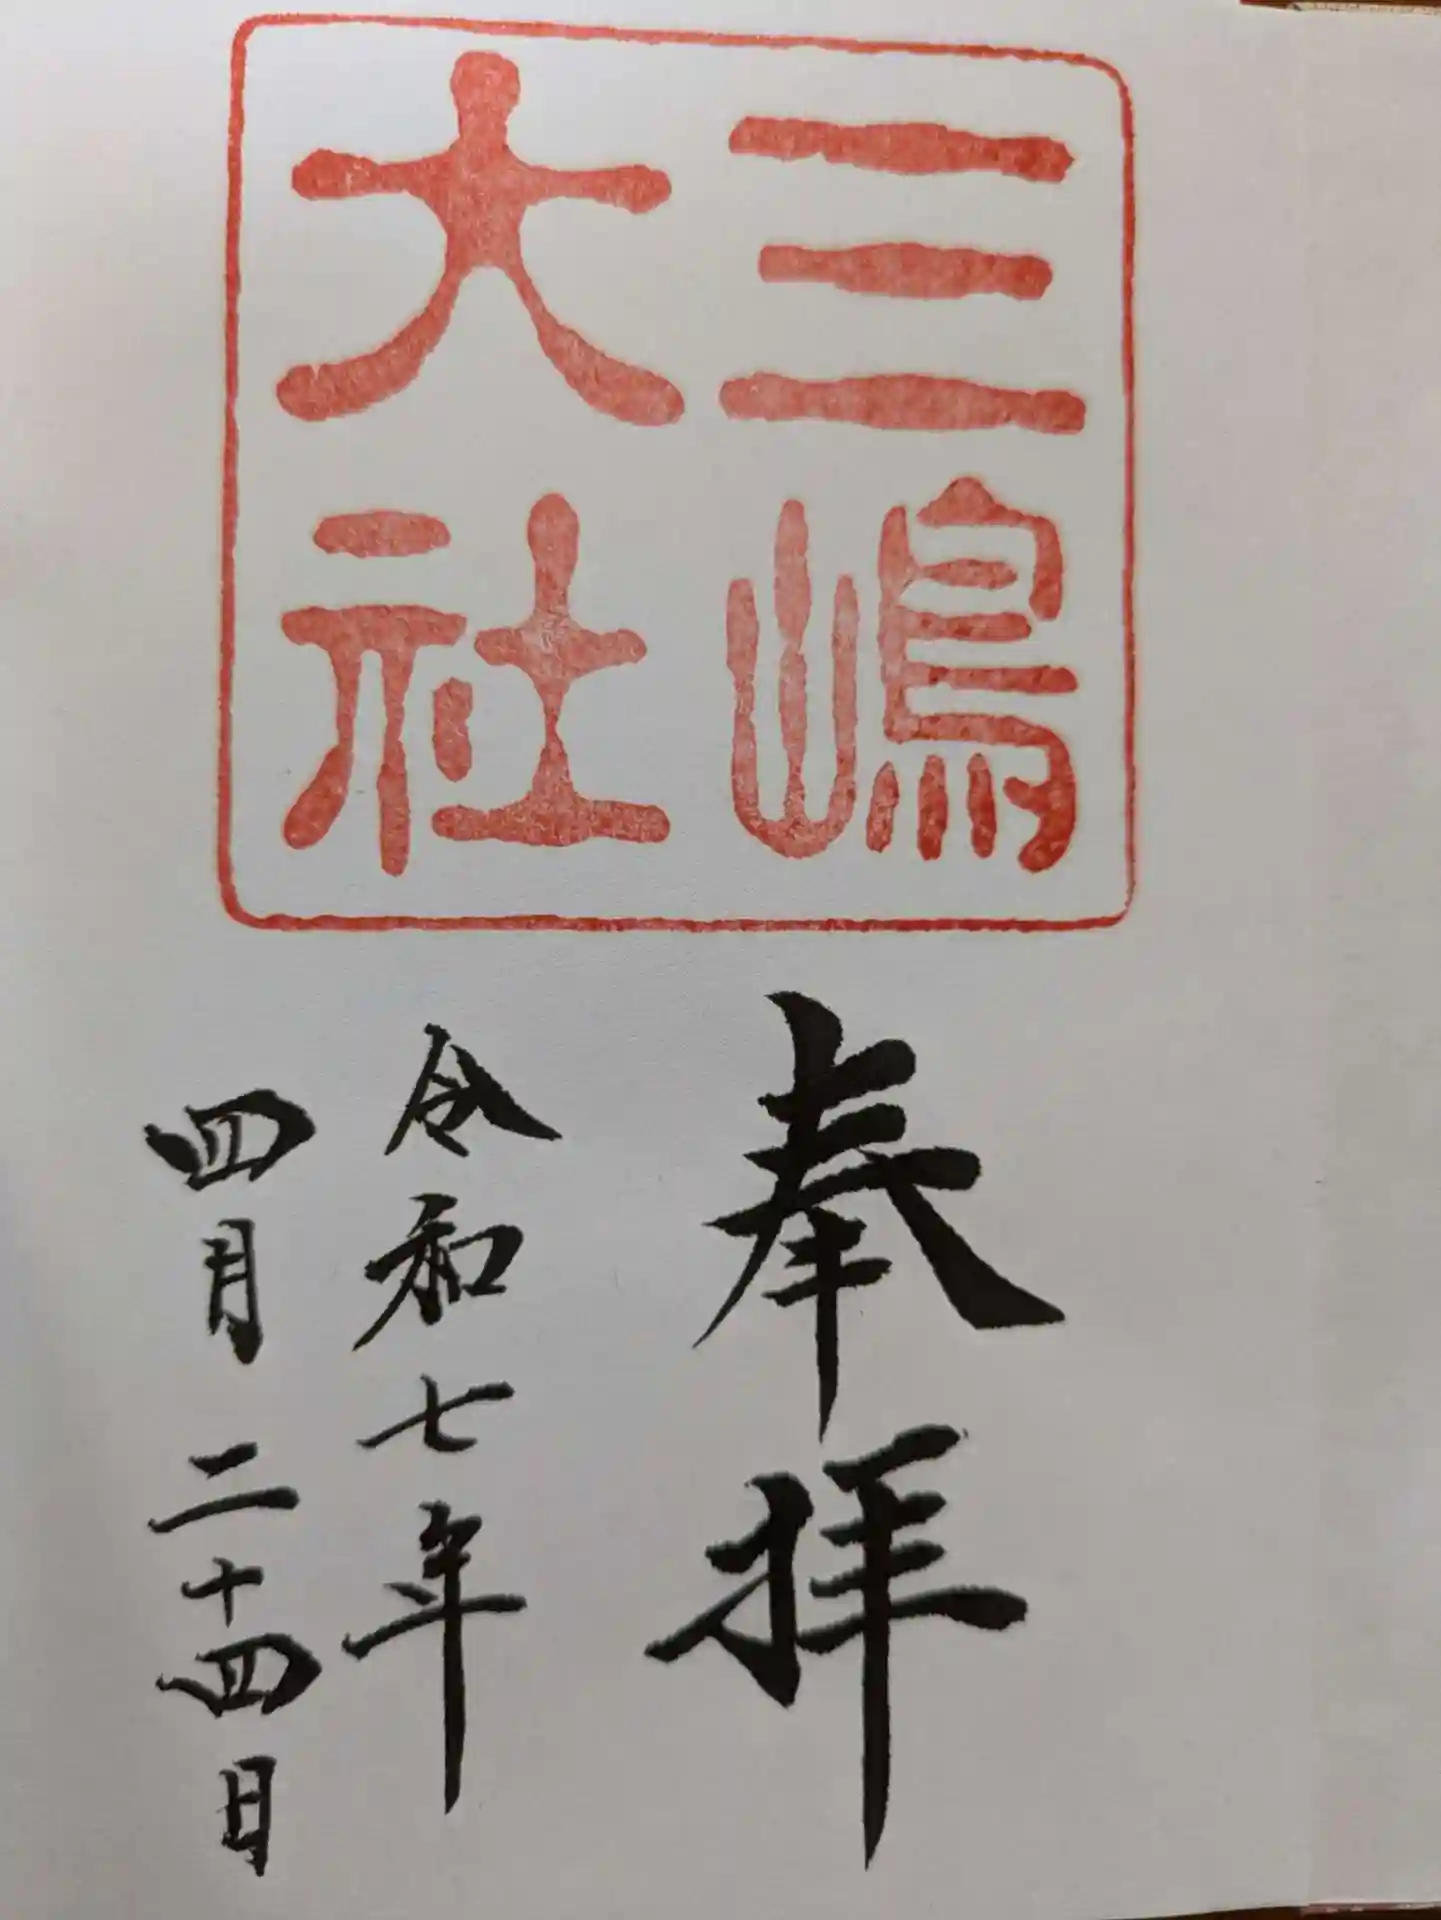 三嶋
大社
奉拝
令和七年
四月二十四日